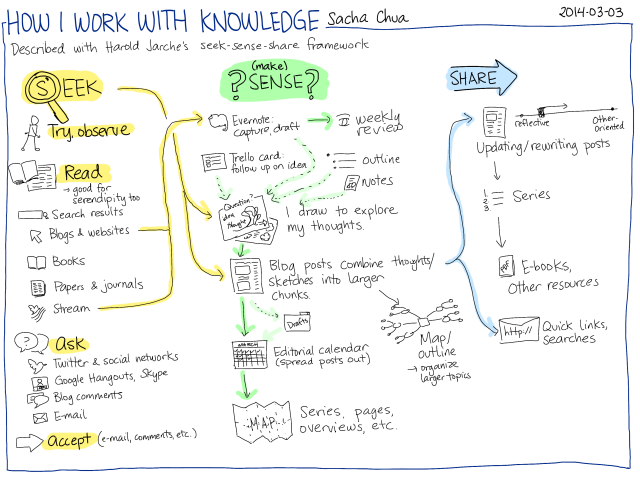 HOW I WORK WITH KNOWLEDGE Sacha Chua 2014-03-03
Described with Harold Jarche's seek-sense-share framework
SEEK
Try, observe
Read
→ good for
serendipity too
Search results
Blogs & websites
Books
Papers & journals
Stream
Ask
Twitter & social networks
Google Hangouts, Skype
Blog comments
E-mail
Accept (e-mail, comments, etc.)
(make)
? SENSE ?
Evernote:
capture, draft
weekly
review
Trello card:
follow up on idea
outline
notes
Question?
idea
thought
I draw to explore
my thoughts.
Blog posts combine thoughts/
sketches into larger
chunks.
Drafts
MARCH
Editorial calendar
(spread posts out)
Map/
outline
→ organize
larger topics
MAP
Series, pages,
overviews, etc.
SHARE
reflective
Other-
oriented
Updating/rewriting posts
1.
2.
3.
Series
E-books,
Other resources
http://
Quick links,
searches